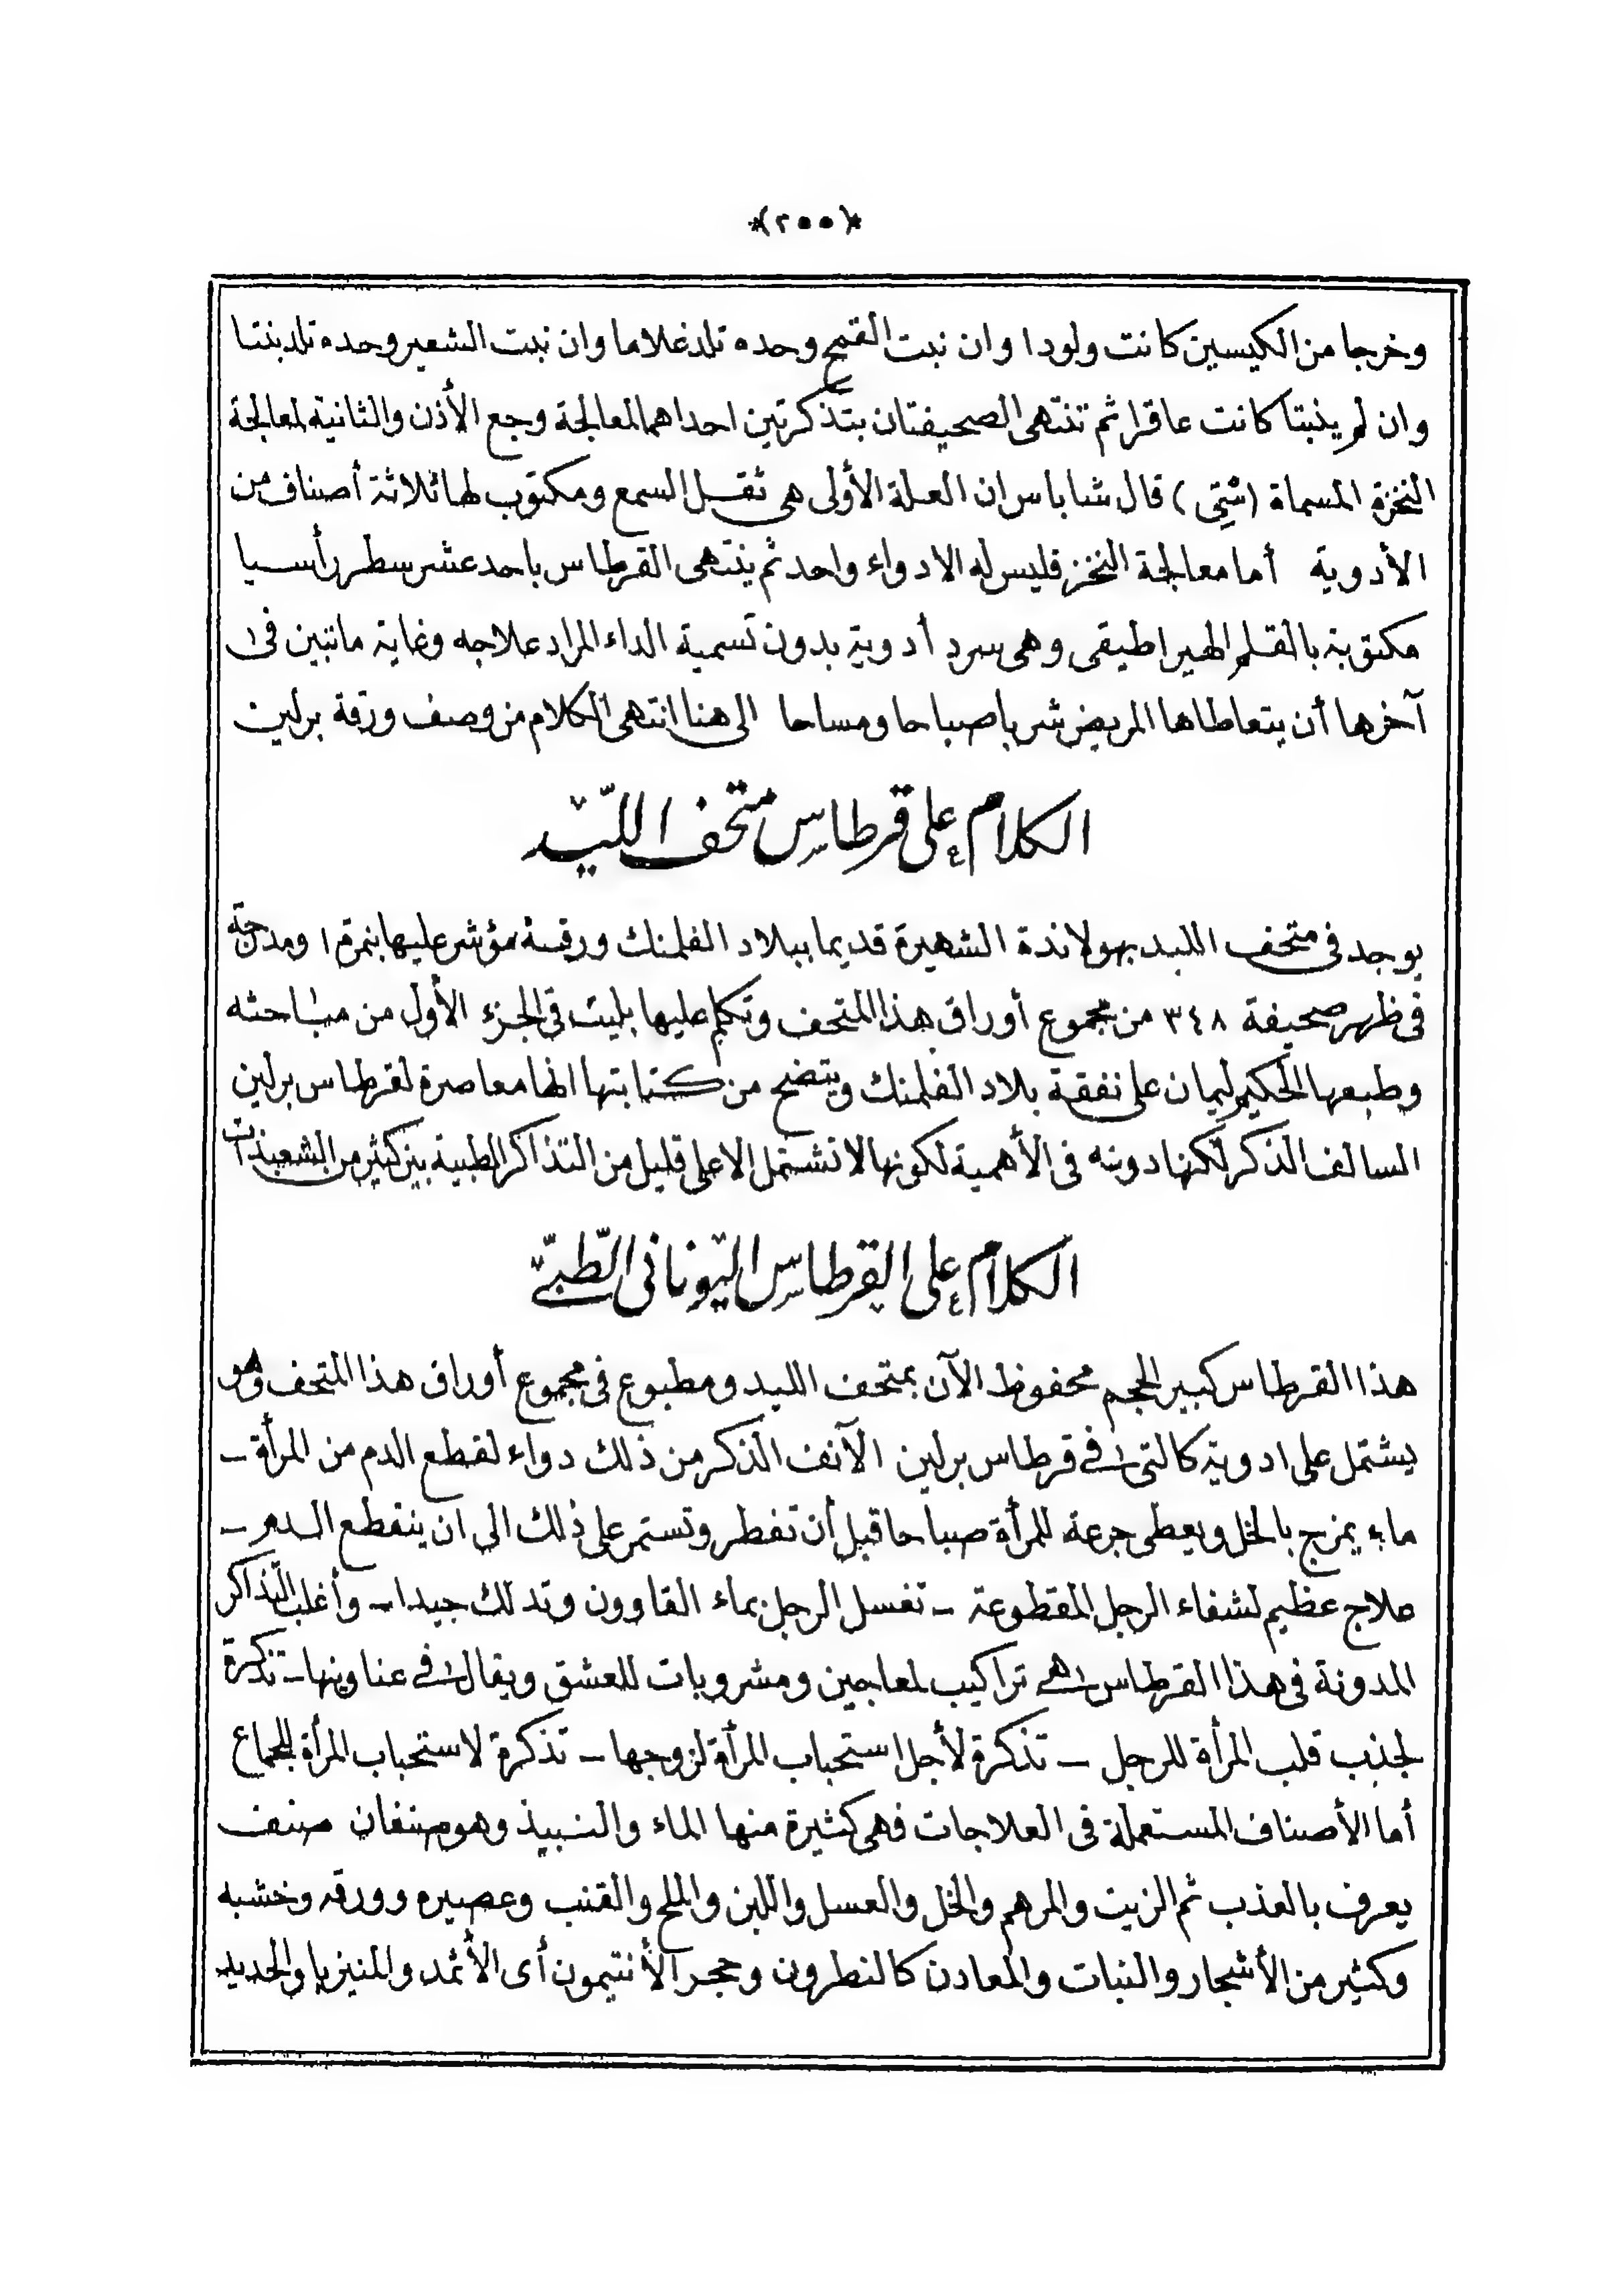 *(٢٠٠)*
وخرجا من الكيسين كانت ولودا وان نبت القمح وحده تلد غلاما وان نبت الشعير وحده تلد بنتا
وان لم ينبتا كانت عاقرا ثم تنتهى الصحيفتان بتذكرتين احداهما لمعالجة وجع الأذن والثانية لمعالجة
النخزة المسماة (شتى) قال شاباس ان العلة الأولى هى ثقل السمع ومكتوب لها ثلاثة أصناف من
الأدوية أما معالجة النخز فليس له الا دواء واحد ثم ينتهى القرطاس باحد عشر سطر رأسيا
مكتوبة بالقلم الهيراطيقى وهى سرد أدوية بدون تسمية الداء المراد علاجه وغاية ماتبين فى
آخرها أن يتعاطاها المريض شربا صباحا ومساحا الى هنا انتهى الكلام من وصف ورقة برلين
الكلام على قرطاس متحف الليد
يوجد فى متحف الليد بهولاندة الشهيرة قديما ببلاد الفلمنك ورقة مؤشر عليها بنمرة ١ ومندرجة
فى ظهر صحيفة ٣٤٨ من مجموع أوراق هذا المتحف وتكلم عليها بليت فى الجزء الأول من مباحثه
وطبعها الحكيم ليمان على نفقة بلاد الفلمنك ويتضح من كتابتها انها معاصرة لقرطاس برلين
السالف الذكر لكنها دونه فى الأهمية لكونها لا تشتمل الا على قليل من التذاكر الطبية بين كثير من الشعبذات
الكلام على القرطاس اليونانى الطبّى
هذا القرطاس كبير الحجم محفوظ الآن بمتحف الليد ومطبوع فى مجموع أوراق هذا المتحف وهو
يشتمل على ادوية كالتى فى قرطاس برلين الآنف الذكر من ذلك دواء لقطع الدم من المرأة –
ماء يمزج بالخل ويعطى جرعة للمرأة صباحا قبل أن تفطر وتستمر على ذلك الى ان ينقطع الدم –
علاج عظيم لشفاء الرجل المقطوعة – تغسل الرجل بماء القاوون وتدلك جيدا – وأغلب التذاكر
المدونة فى هذا القرطاس هى تراكيب لمعاجين ومشروبات للعشق ويقال فى عناوينها – تذكرة
لجذب قلب المرأة للرجل – تذكرة لأجل استحباب المرأة لزوجها – تذكرة لاستحباب المرأة للجماع
أما الأصناف المستعملة فى العلاجات فهى كثيرة منها الماء والنبيذ وهو صنفان صنف
يعرف بالعذب ثم الزيت والمرهم والخل والعسل واللبن والملح والقنب وعصيره وورقه وخشبه
وكثير من الأشجار والنبات والمعادن كالنطرون وحجر الأنتيمون أى الأثمد والمنيزيا والحديد